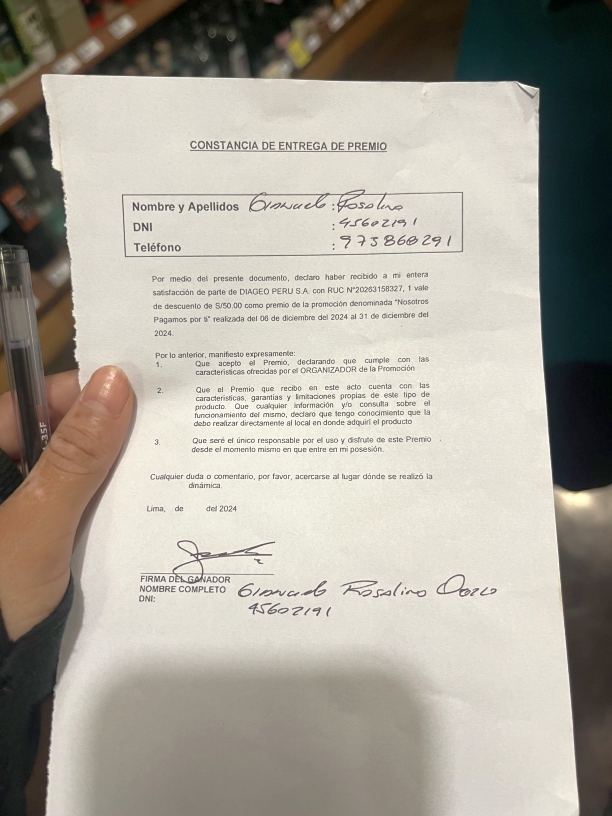 CONSTANCIA DE ENTREGA DE PREMIO
Nombre y Apellidos : Rosalino
DNI : 45602191
Teléfono : 973868291
Por medio del presente documento, declaro haber recibido a mi entera
satisfacción de parte de DIAGEO PERU S.A. con RUC N°20263158327, 1 vale
de descuento de S/50.00 como premio de la promoción denominada "Nosotros
Pagamos por ti" realizada del 06 de diciembre del 2024 al 31 de diciembre del
2024.
Por lo anterior, manifiesto expresamente:
1. Que acepto el Premio, declarando que cumple con las
características ofrecidas por el ORGANIZADOR de la Promoción
2. Que el Premio que recibo en este acto cuenta con las
características, garantías y limitaciones propias de este tipo de
producto. Que cualquier información y/o consulta sobre el
funcionamiento del mismo, declaro que tengo conocimiento que la
debo realizar directamente al local en donde adquirí el producto
3. Que seré el único responsable por el uso y disfrute de este Premio
desde el momento mismo en que entre en mi posesión.
Cualquier duda o comentario, por favor, acercarse al lugar dónde se realizó la
dinámica.
Lima, de del 2024
FIRMA DEL GANADOR
NOMBRE COMPLETO Rosalino
DNI: 45602191